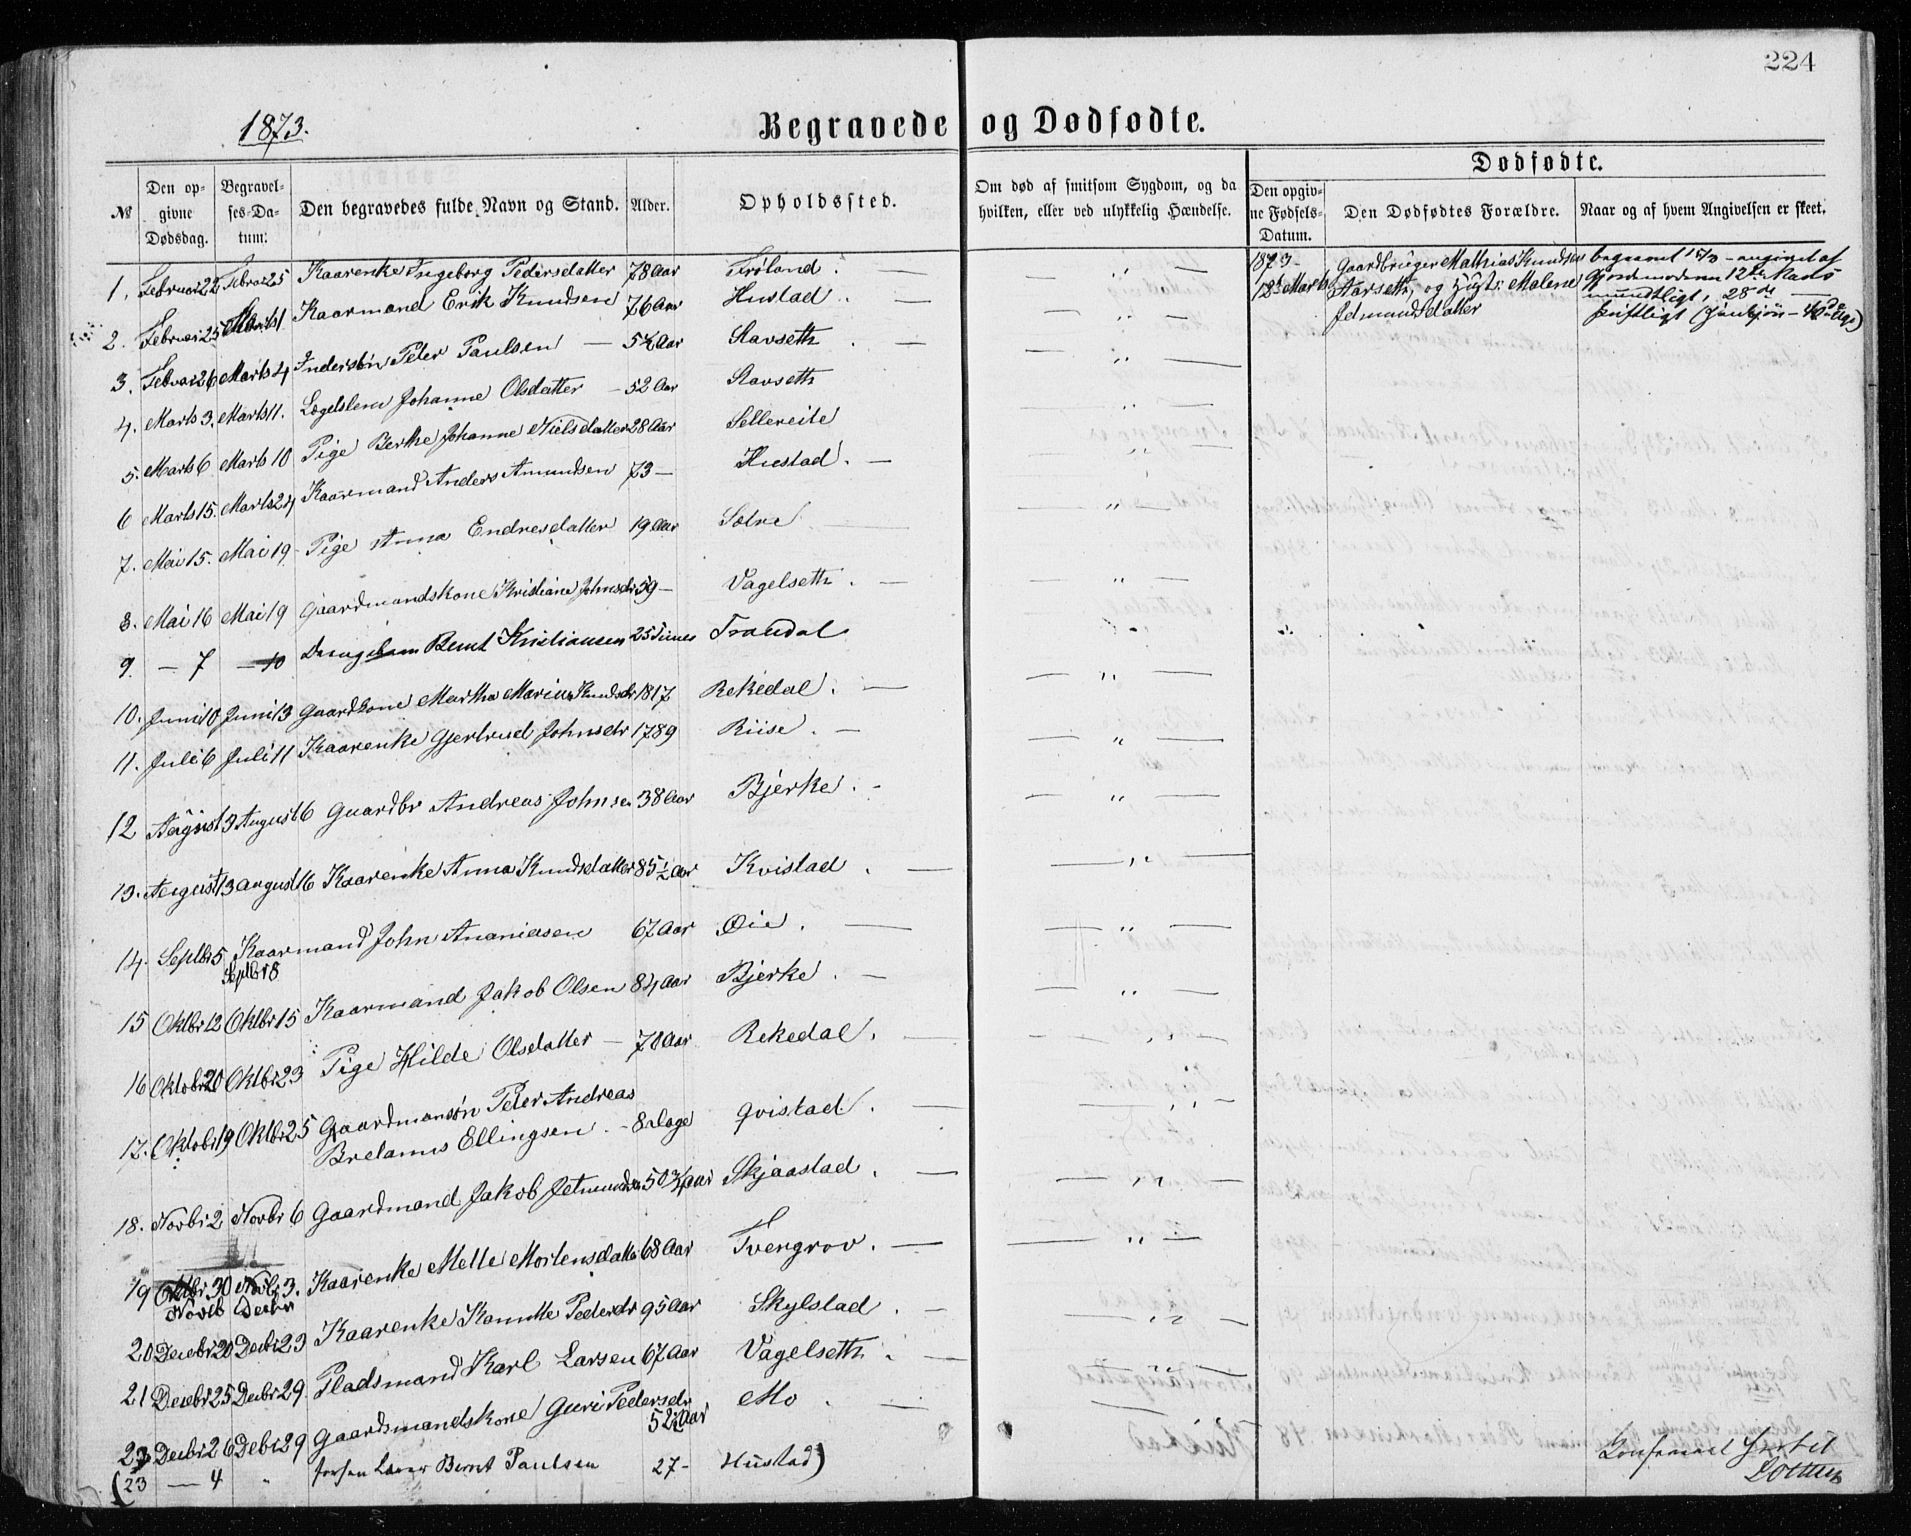 224
1873.
Begravede og Dødfødte.
Dødfødte.
№
Den opgivne Dødsdag.
Begravelses-Datum.
Den begravedes fulde Navn og Stand.
Alder.
Opholdssted.
Om død af smitsom Sygdom, og da hvilken, eller ved ulykkelig Hændelse.
Den opgivne Fødsels-Datum.
Den Dødfødtes Forældre.
Naar og af hvem Angivelsen er skeet.
1. Februar 22 Febvar 25 Kaarenke Ingeborg Pedersdatter 78 Aar Frøland. — „ —
2. Februar 25 Marts 1 Kaarmand Erik Knudsen 76 Aar Hustad. — „ —
3. Febvar 26 Marts 4 Indersøn Peter Paulsen — 5½ Aar Stavseth. — „ —
4. Marts 3. Marts 11. Lægdslem Johanne Olsdatter — 52 Aar Stavseth — „ —
5. Marts 6 Marts 10 Pige Berthe Johanne Nielsdatter 28 Aar Sellereite — „ —
6 Marts 15. Marts 24 Kaarmand Anders Amundsen 73 — Hustad. — „ —
7. Mai 15. Mai 19 Pige Anna Endresdatter 19 Aar Sætre — „ —
8. Mai 16 Mai 19 Gaardmandskone Kristiane Johnsdr 59 — Vagelseth. — „ —
9 — 7 — 10 Drengebarn Bernt Kristiansen 25 Timer Trandal — „ —
10. Juni 10 Juni 13 Gaardkone Martha Marie Knudsdr 1817 Rekedal. — „ —
11. Juli 6 Juli 11 Kaarenke Gjertrud Johnsdr 1789 Riise. — „ —
12 August 3 August 6 Gaardbr Andreas Johnsen 38 Aar Bjerke. — „ —
13. August 13 August 16 Kaarenke Anna Knudsdatter 85½ Aar Kvistad. — „ —
14. Septbr 5 Septbr 8 Kaarmand John Ananiasen 67 Aar Øie. — „ —
15 Oktbr 12 Oktbr 15 Kaarmand Jakob Olsen 84 Aar Bjerke. — „ —
16 Oktobr 20 Oktbr 23 Pige Hilde Olsdatter — 78 Aar Rekedal. — „ —
17. Oktobr 19 Oktbr 25 Gaardmansøn Peter Andreas
Ellingsen. — 8 Dage Qvistad. — „ —
18. Novbr 2 Novbr 6 Gaardmand Jakob Jetmundsen 50¾ Aar Skjaastad. — „ —
19 Oktbr 30 Novbr 3. Kaarenke Mette Mortensdatter 68 Aar Tvergrov. — „ —
20 Decbr 20 Decbr 23 Kaarenke Pedersdr 95 Aar Skylstad. — „ —
21 Decbr 25 Decbr 29. Pladsmand Karl Larsen 67 Aar Vagelseth. — „ —
Decbr 26 Debr 29 Gaardsmandskone Guri Pedersdr 52½ Aar Mo. —
(23 — 4 „ Bernt Paulsen 27 — Hustad)
1873 —
12te Marts
Gaardbruger Mathias Knudsen
Aarseth, og Hust: Malene
Jetmundsdatter
begravet 15/3 — angivet af
Gjordemoderen 12te Marts
mundtligt, 28de —
skriftligt